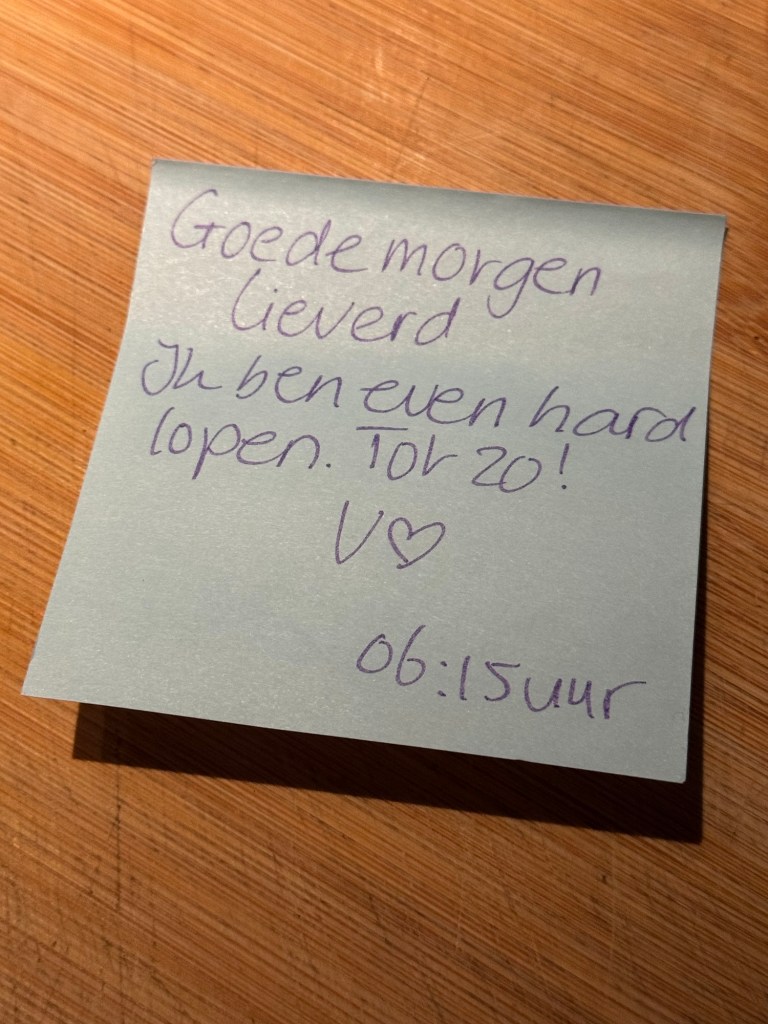 Goedemorgen
lieverd
Ik ben even hard
lopen. Tot zo!
V♡
06:15uur